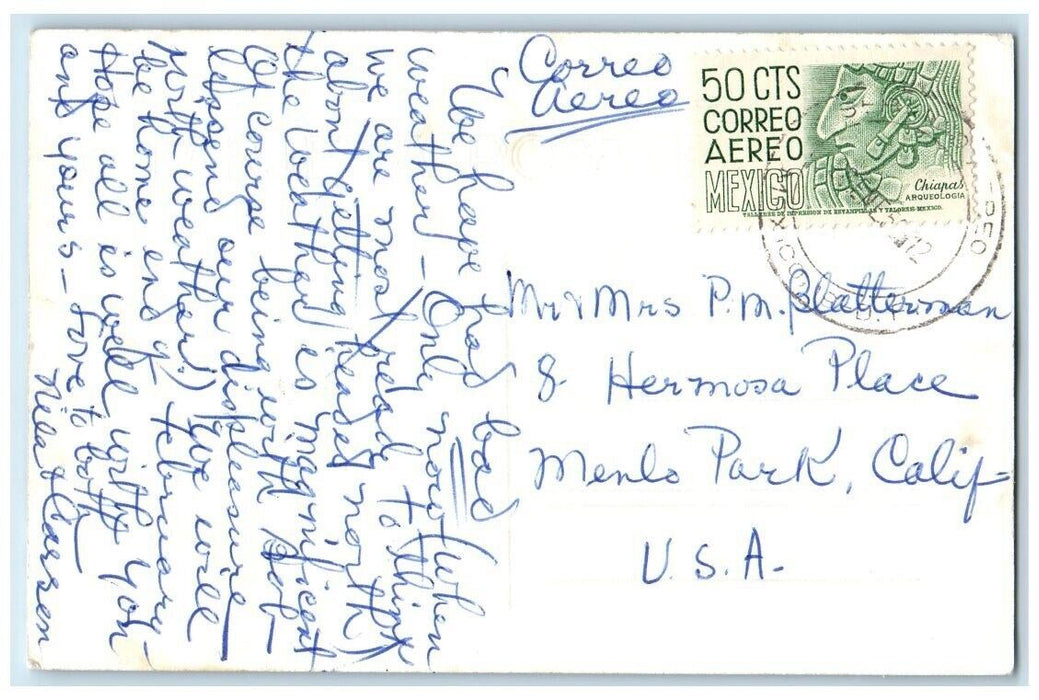 Correo
Aereo
50 CTS
CORREO
AEREO
MEXICO
Chiapas
ARQUEOLOGIA
TALLERES DE IMPRESION DE ESTAMPILLAS Y VALORES-MEXICO.
We have had bad
weather - Only now (when
we are most ready to think
about getting headed north)
the weather is magnificent
Of course being with Dot
lessens our displeasure
with weather!) We will
be home end of February -
Hope all is well with you
and yours - Love to both
Mr & Mrs P.M. Platterman
8 Hermosa Place
Menlo Park, Calif-
U.S.A.